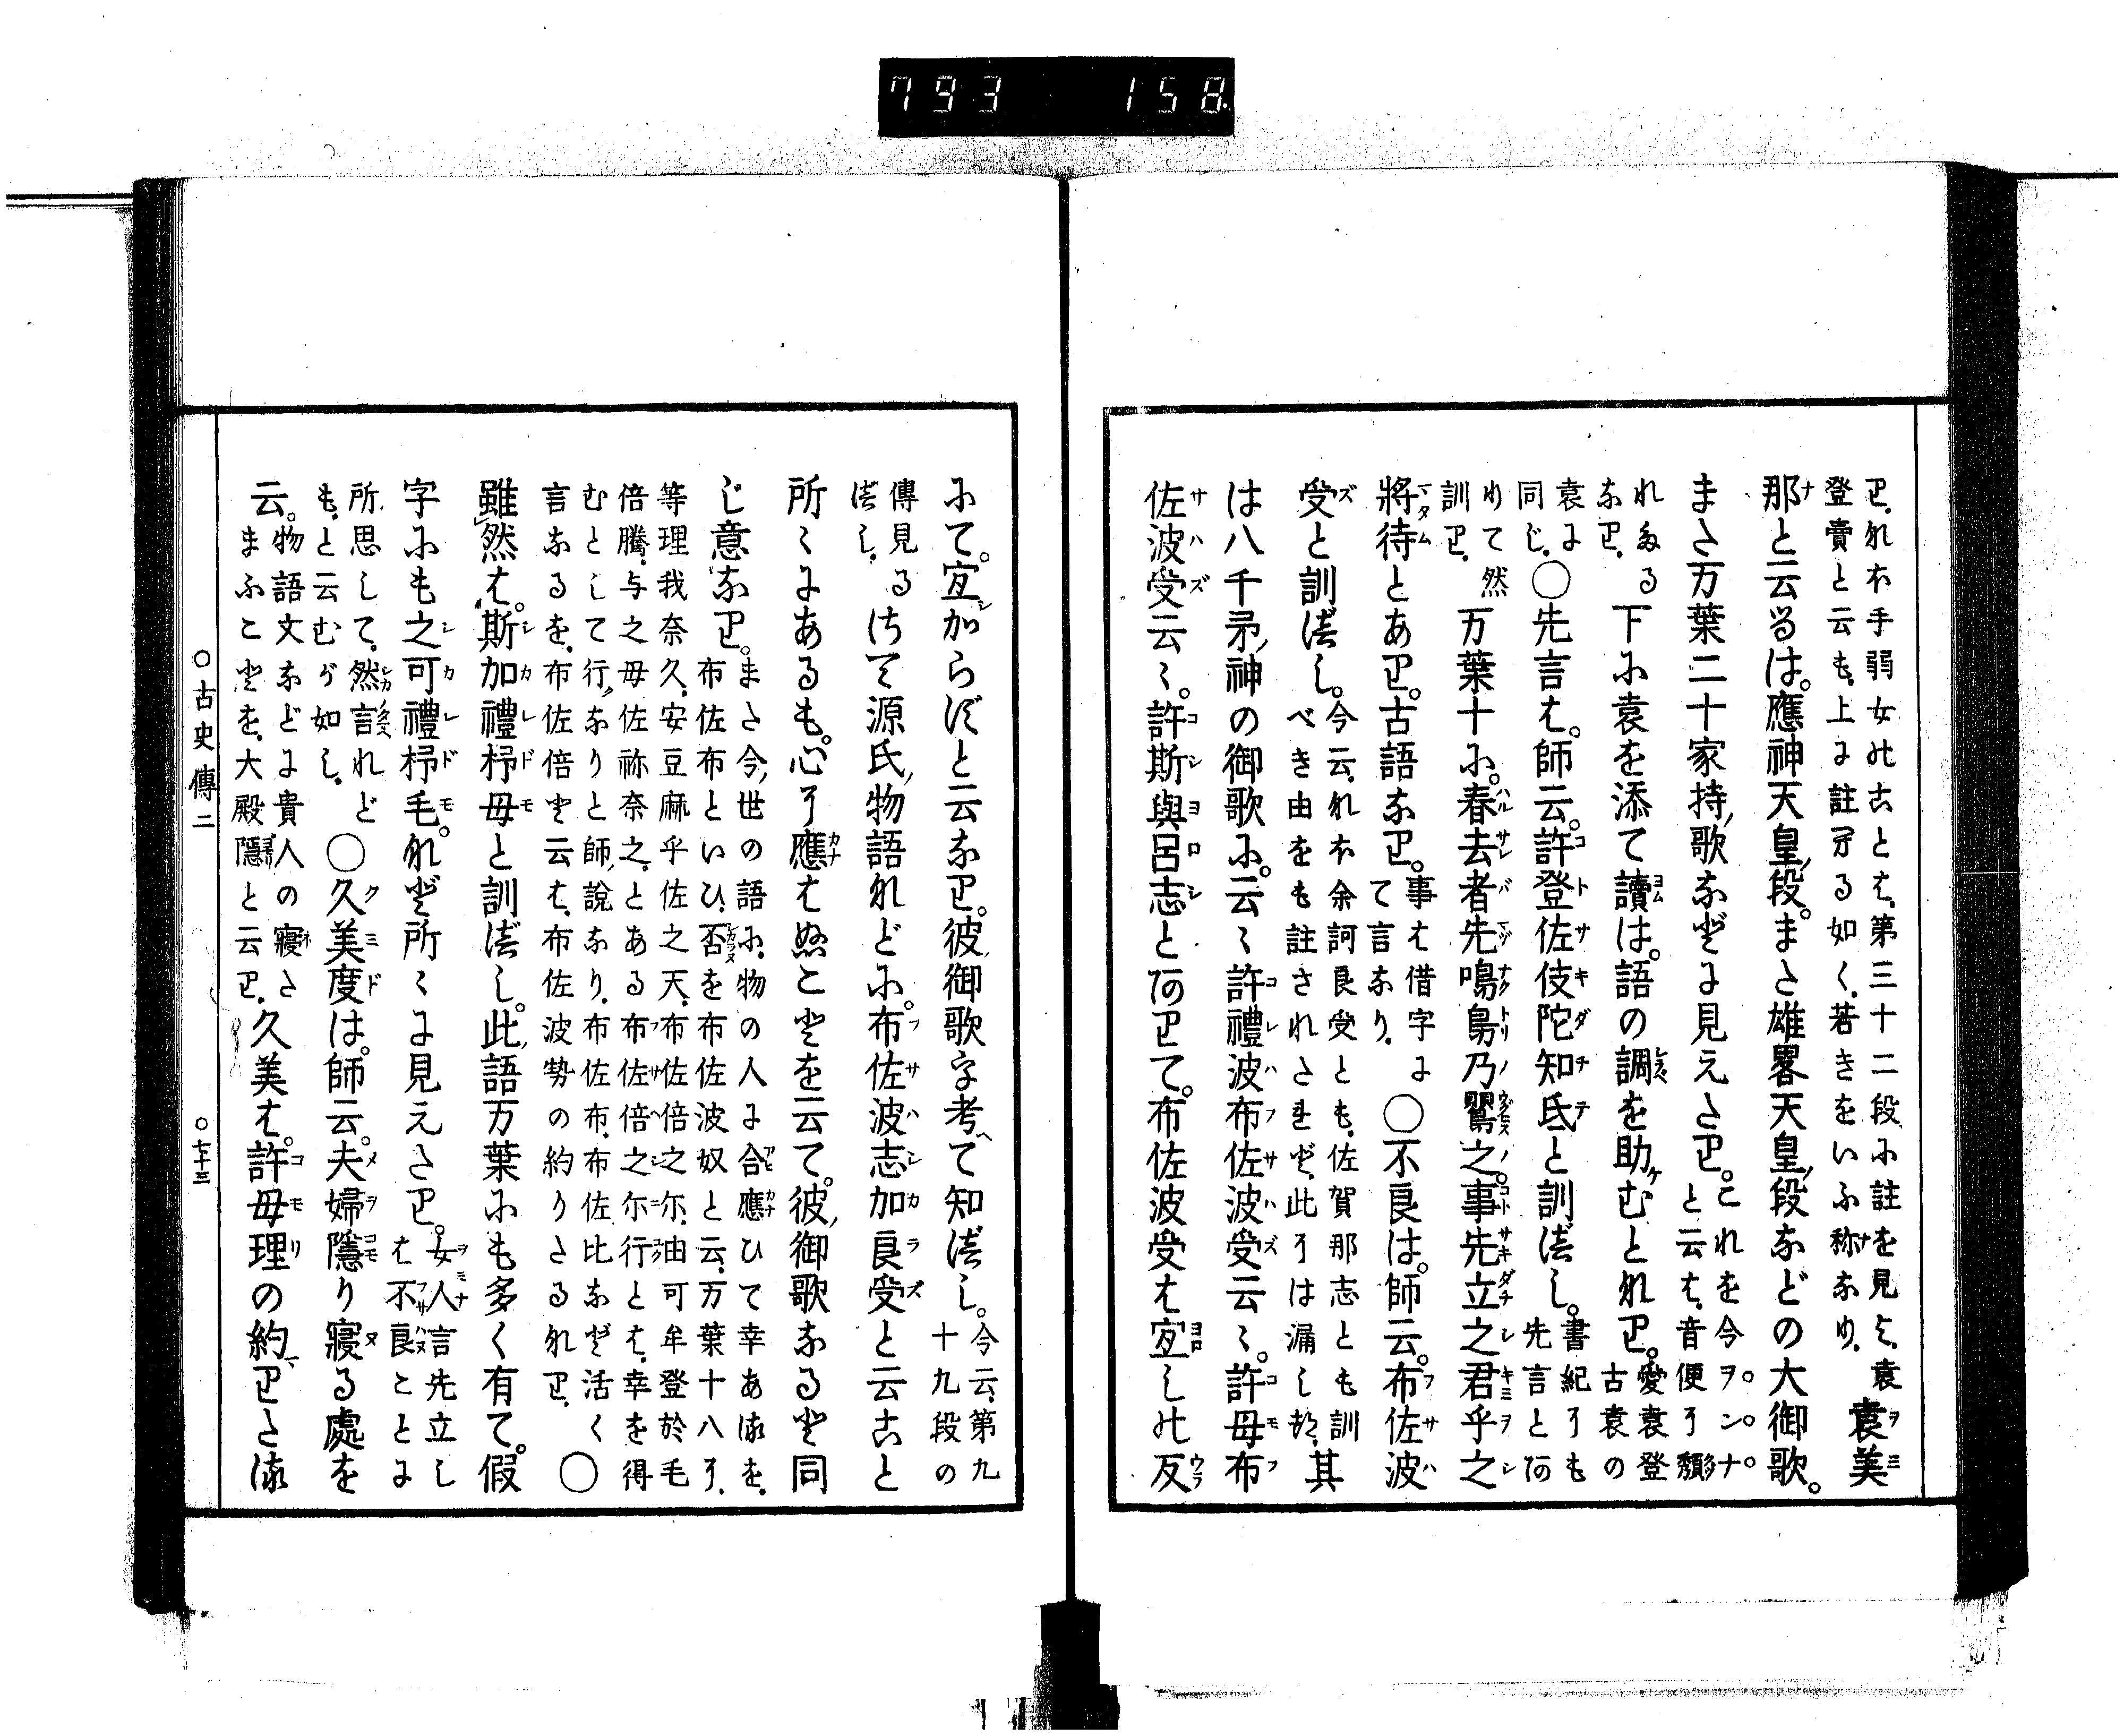 793 158
り。れホ手弱女のことは、第三十二段に註を見よ。袁
登賣と云も、上に註せる如く、若きをいふ称なり。
袁美
那と云るは。應神天皇段。また雄畧天皇段などの大御歌。
また万葉二十家持歌などに見えたり。
これを今ヲンナ
と云は、音便に頽
れたる
なり。
下に袁を添て讀は。語の調を助むとなり。
愛袁登
古袁の
袁に
同じ。
〇先言は。師云。許登佐伎陀知氐と訓べし。
書紀にも
先言とあ
りて然
訓り。
万葉十に。春去者先鳴鳥乃鸎之。事先立之君乎之
將待とあり。古語なり。
事は借字に
て言なり。
〇不良は。師云。布佐波
受と訓べし。
今云、れホ余訶良受とも、佐賀那志とも訓
べき由をも註されたれど、此には漏しぬ。
其
は八千矛神の御歌に。云々許禮波布佐波受云々。許母布
佐波受云々。許斯與呂志とありて。布佐波受は宜しの反
にて。宜からずと云なり。彼御歌を考て知べし。
今云、第九
十九段の
傳見る
べし。
さて源氏物語などに。布佐波志加良受と云こと
所々にあるも。心に應はぬことを云て。彼御歌なると同
じ意なり。
また今世の語に、物の人に合應ひて幸あるを、
布佐布といひ、否を布佐波奴と云、万葉十八に、
等理我奈久、安豆麻乎佐之天、布佐倍之尓、由可牟登於毛
倍騰、与之母佐祢奈之、とある布佐倍之尓行とは、幸を得
むとして行なりと師説なり。布佐布、布佐比など活く
言なるを、布佐倍と云は、布佐波勢の約りたるなり。
〇
雖然は。斯加禮杼母と訓べし。此語万葉にも多く有て。假
字にも之可禮杼毛。など所々に見えたり。
女人言先立し
は不良ことに
所思して、然言れど
も、と云むが如し。
〇久美度は。師云。夫婦隱り寢る處を
云。
物語文などに貴人の寢た
まふことを、大殿隱と云り。
久美は。許母理の約りたる
〇古史傳二
〇七十三